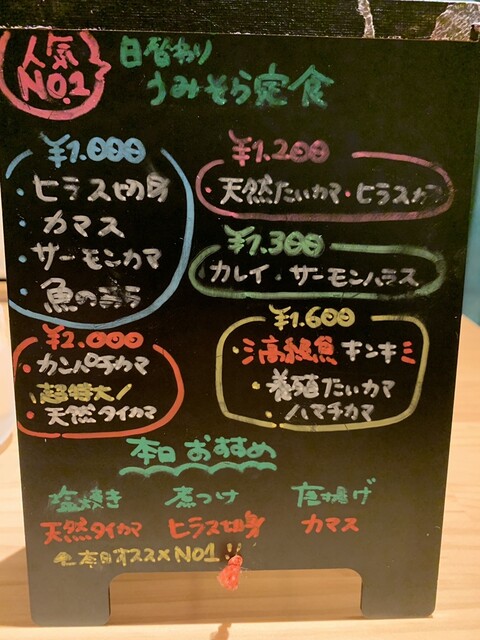 人気
NO.1
日替わり
うみそら定食
¥1.000
・ヒラス切身
・カマス
・サーモンカマ
・魚の
¥1.200
・天然たいカマ・ヒラスカマ
¥1.300
カレイ・サーモンハラス
¥2.000
・カンパチカマ
超特大!
・天然タイカマ
¥1.600
・高級魚キンキ
・養殖たいカマ
・ハマチカマ
本日おすすめ
塩焼き 煮つけ 唐揚げ
天然タイカマ ヒラス切身 カマス
本日オススメNO1!!